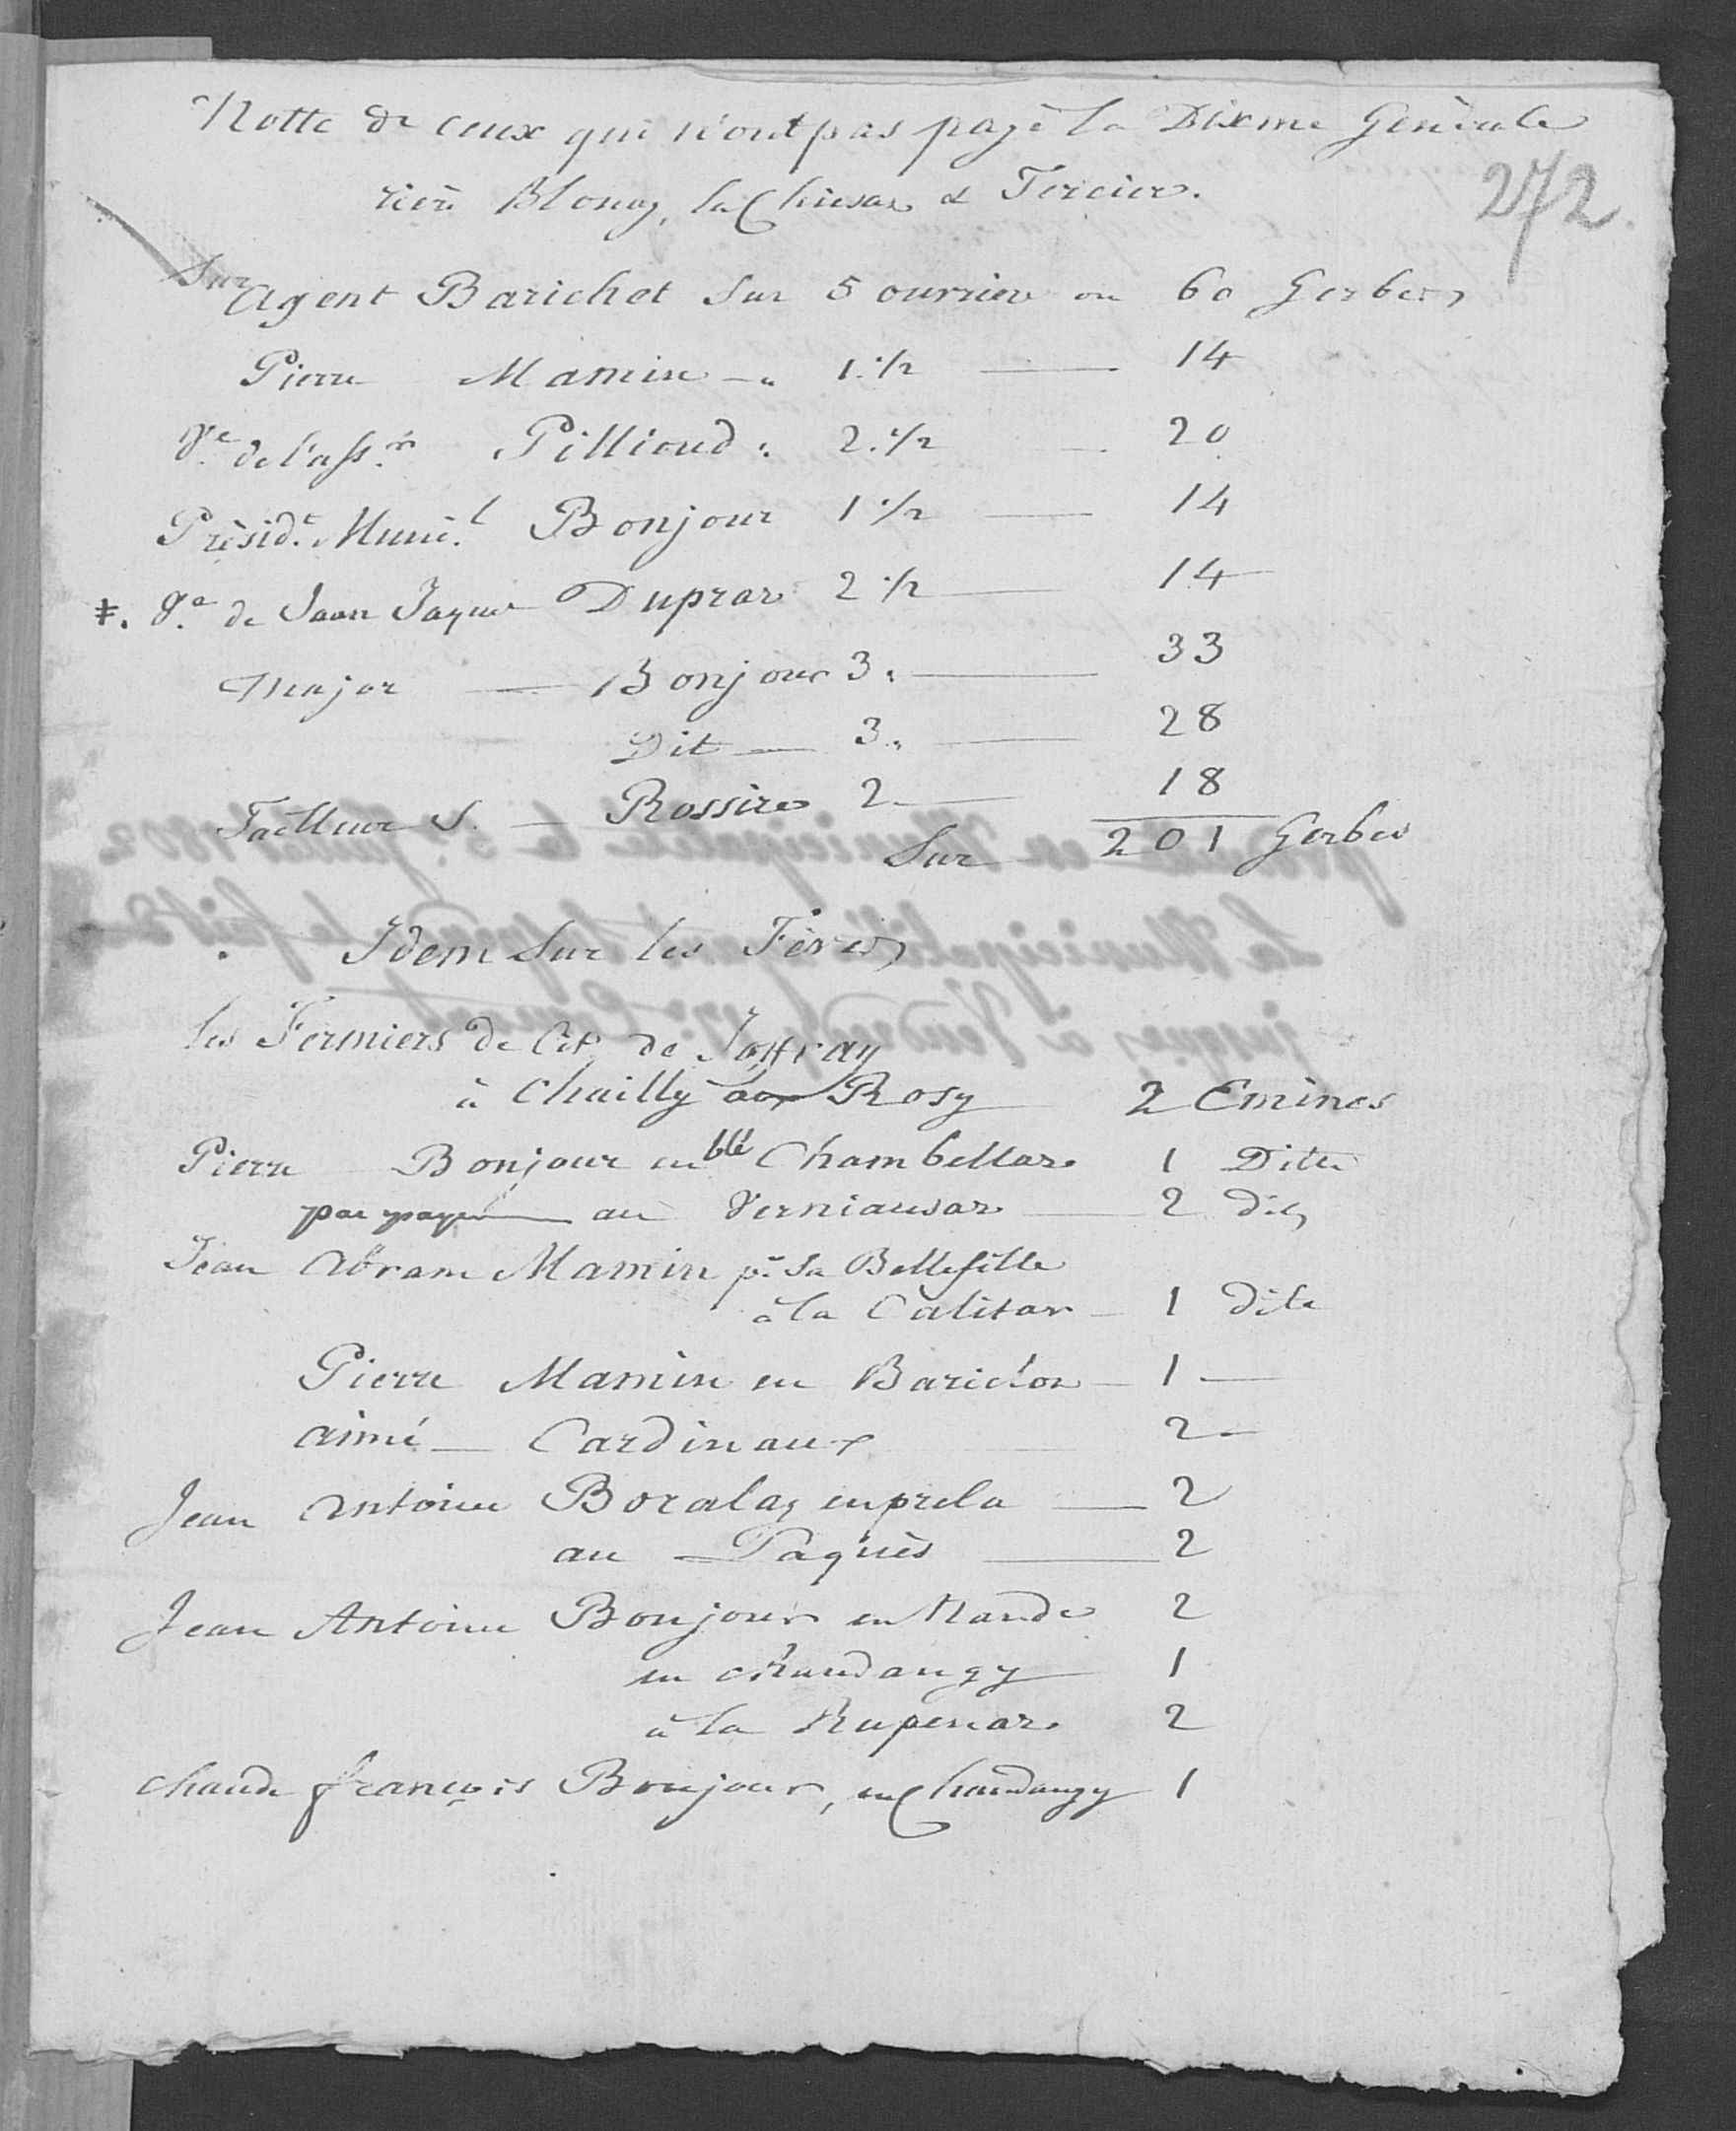 Notte de ceux qui n'ont pas payé la Dixme Génèrale
272
rière Blonay, la Chiesaz & Tercier.
Sur
Agent Barichet Sur 5 ouvriers ou 60 Gerbes
Pierre Mamin — " 1.½ — 14
Ve de l'ass.r Pillioud " 2.½ — 20
Présid.t Munic.l Bonjour 1½ — 14
‡. Ve de Jean Jaques Dupraz 2½ — 14
Major — Bonjour 3 " — 33
Dit — 3 " — 28
Tailleur S. — Rossire 2 — 18
Sur 201 Gerbes
Idem Sur les Fèves
les Fermiers de Cit. de Joffray
à Chailly aux Rosy 2 Emines
Pierre Bonjour en blé Chambellaz 1 Dite
au Verniausaz — 2 dies
Jean Abram Mamin pr Sa Bellefille
à la Calitaz — 1 dite
Pierre Mamin en Baricloz — 1 —
aimé — Cardinaux 2 —
Jean Antoine Boralay en prela — 2
au Paquis — 2
Jean Antoine Bonjour en Nande 2
en Chaudangy 1
à la Rupenaz 2
Chaude françois Bonjour, en Chaudangy 1
présenté en Municipalité le 5e Juillet 1802
La Municipalité
jusques à Vendredy